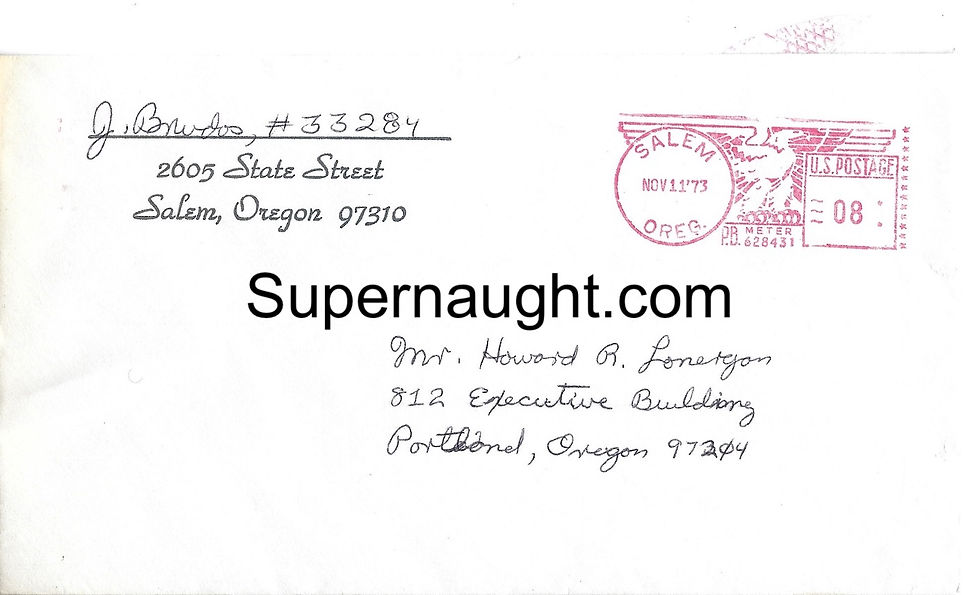 J. Brudos, #33284
2605 State Street
Salem, Oregon 97310
SALEM
NOV 11 '73
OREG.
P.B. METER
628431
U.S. POSTAGE
08
Supernaught.com
Mr. Howard R. Lonergan
812 Executive Building
Portland, Oregon 97204